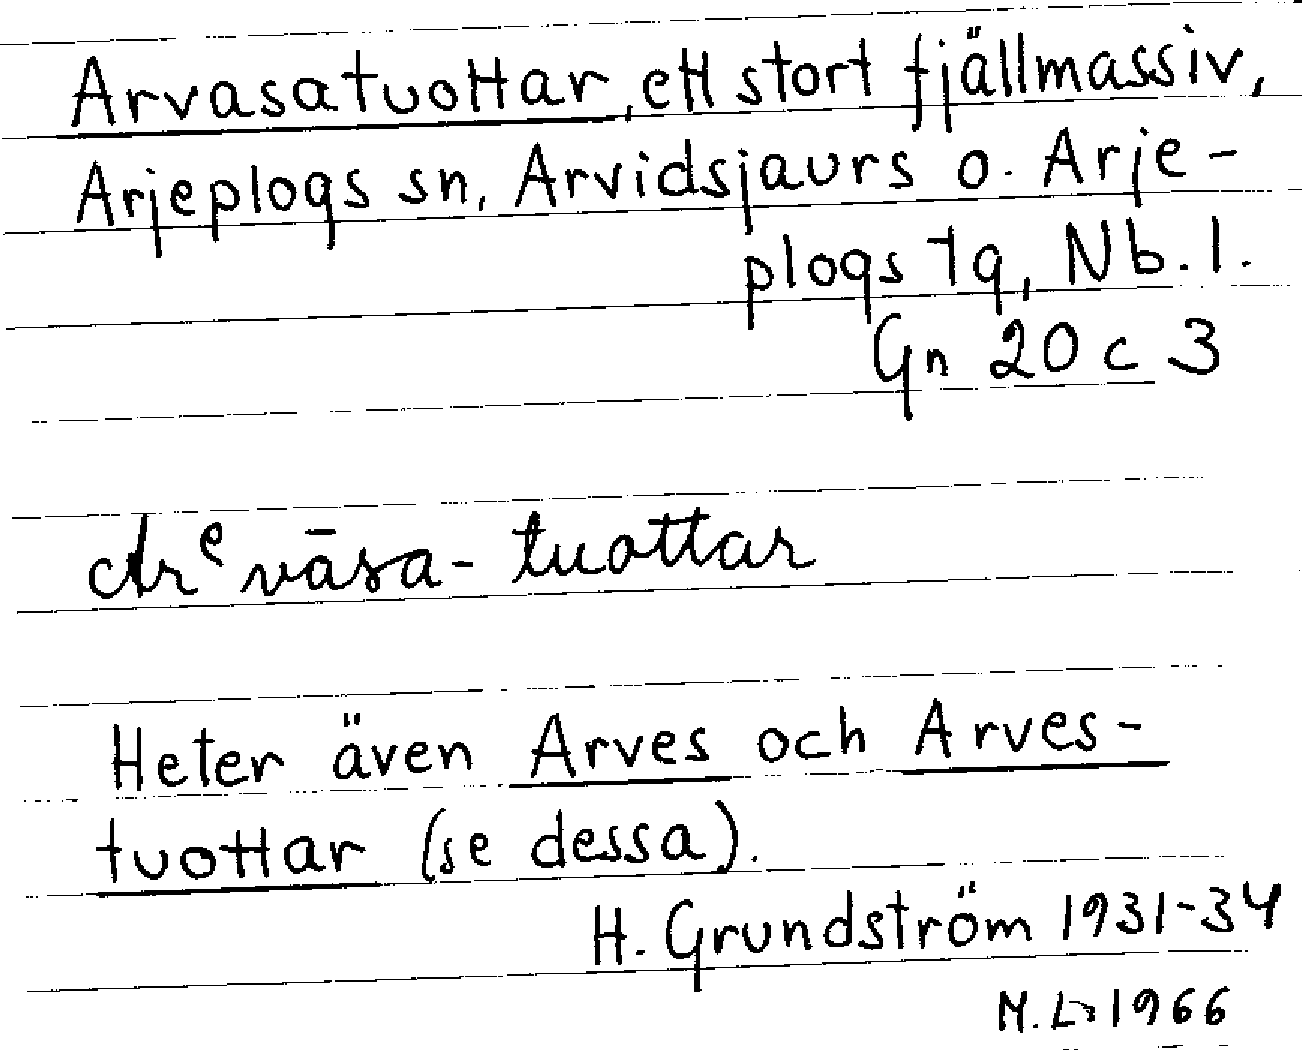 Arvasatuottar, ett stort fjällmassiv,
Arjeplogs sn, Arvidsjaurs o. Arje-
plogs tg, Nb. l.
Gn 20 c 3
arᵉvāsa-tuottar
Heter även Arves och Arves-
tuottar (se dessa).
H. Grundström 1931-34
1966